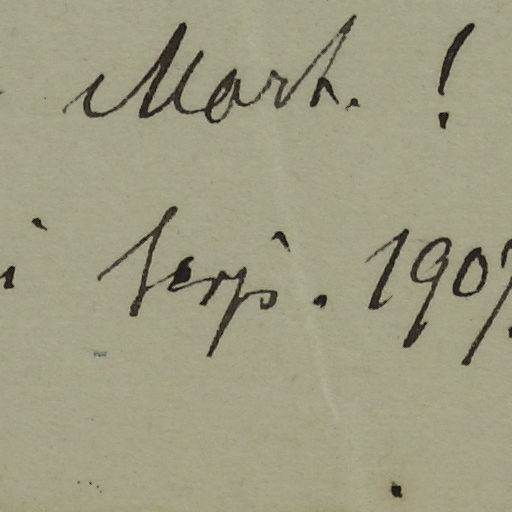 Mark. !
i Serp. 1907